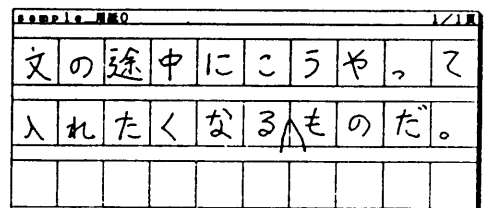 sample 用紙0 1/1頁
文の途中にこうやって
入れたくなるものだ。